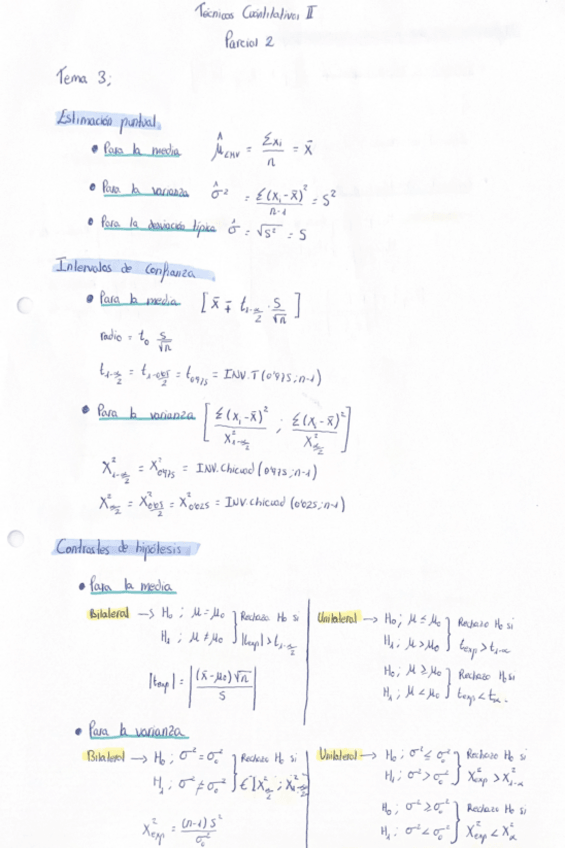 Técnicas Cuantitativas II
Parcial 2
Tema 3;
Estimación puntual
• Para la media μ̂_EMV = Σxi / n = x̄
• Para la varianza σ̂² = Σ(xi - x̄)² / n-1 = S²
• Para la deviación típica σ̂ = √S² = S
Intervalos de confianza
• Para la media [x̄ ∓ t_{1-α/2} · S/√n]
radio = t₀ S/√n
t_{1-α/2} = t_{1-0'05/2} = t_{0'975} = INV.T(0'975; n-1)
• Para la varianza [Σ(xi - x̄)² / X²_{1-α/2} ; Σ(xi - x̄)² / X²_{α/2}]
X²_{1-α/2} = X²_{0'975} = INV.Chicuad(0'975; n-1)
X²_{α/2} = X²_{0'05/2} = X²_{0'025} = INV.Chicuad(0'025; n-1)
Contrastes de hipótesis
• Para la media
Bilateral → H₀; μ = μ₀ } Rechazo H₀ si
H₁; μ ≠ μ₀ } |texp| > t_{1-α/2}
|texp| = |(x̄ - μ₀)√n / S|
Unilateral → H₀; μ ≤ μ₀ } Rechazo H₀ si
H₁; μ > μ₀ } texp > t_{1-α}
H₀; μ ≥ μ₀ } Rechazo H₀ si
H₁; μ < μ₀ } texp < tα.
• Para la varianza
Bilateral → H₀; σ² = σ₀² } Rechazo H₀ si
H₁; σ² ≠ σ₀² } ∉ ]X²_{α/2} ; X²_{1-α/2}
X²exp = (n-1) S² / σ₀²
Unilateral → H₀; σ² ≤ σ₀² } Rechazo H₀ si
H₁; σ² > σ₀² } X²exp > X²_{1-α}
H₀; σ² ≥ σ₀² } Rechazo H₀ si
H₁; σ² < σ₀² } X²exp < X²α